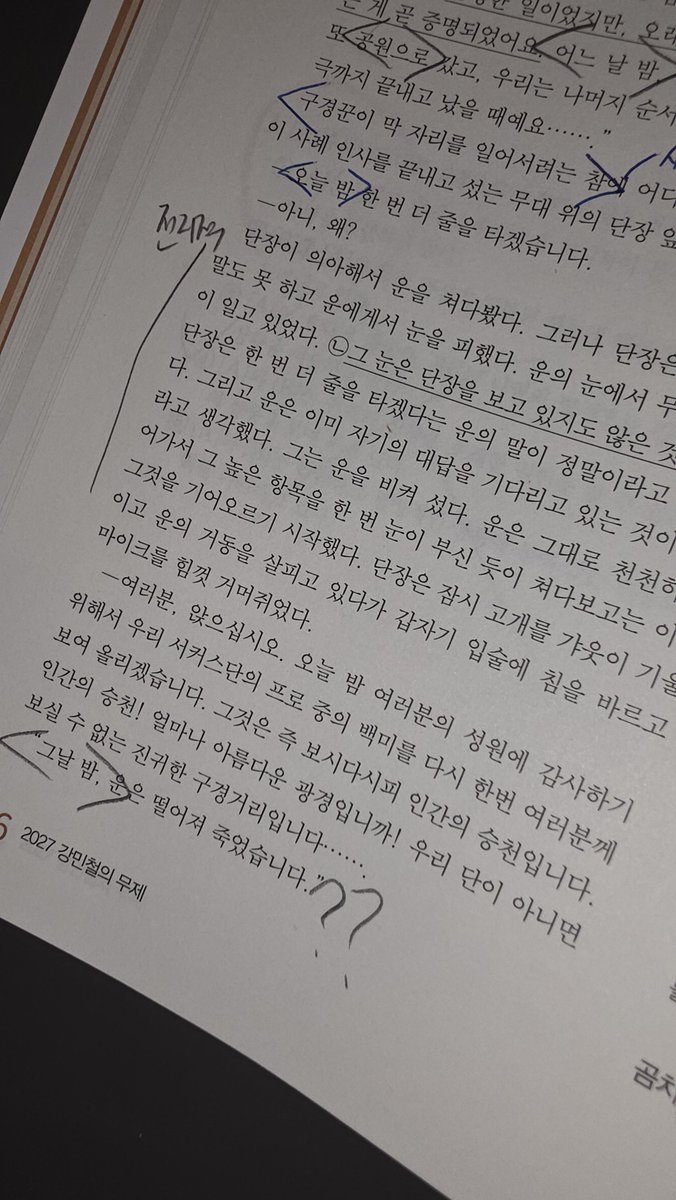 한 일이었지만, 오래
는 게 곧 증명되었어요. 어느 날 밤,
또 공원으로 갔고, 우리는 나머지 순서
극까지 끝내고 났을 때예요……."
구경꾼이 막 자리를 일어서려는 참에 어디
이 사례 인사를 끝내고 섰는 무대 위의 단장 앞
—오늘 밤 한 번 더 줄을 타겠습니다.
—아니, 왜?
전지적
단장이 의아해서 운을 쳐다봤다. 그러나 단장은
말도 못 하고 운에게서 눈을 피했다. 운의 눈에서 무
이 일고 있었다. ㉡그 눈은 단장을 보고 있지도 않은 것
단장은 한 번 더 줄을 타겠다는 운의 말이 정말이라고
다. 그리고 운은 이미 자기의 대답을 기다리고 있는 것이
라고 생각했다. 그는 운을 비켜 섰다. 운은 그대로 천천히
어가서 그 높은 항목을 한 번 눈이 부신 듯이 쳐다보고는 이
그것을 기어오르기 시작했다. 단장은 잠시 고개를 갸웃이 기울
이고 운의 거동을 살피고 있다가 갑자기 입술에 침을 바르고
마이크를 힘껏 거머쥐었다.
—여러분, 앉으십시오. 오늘 밤 여러분의 성원에 감사하기
위해서 우리 서커스단의 프로 중의 백미를 다시 한번 여러분께
보여 올리겠습니다. 그것은 즉 보시다시피 인간의 승천입니다.
인간의 승천! 얼마나 아름다운 광경입니까! 우리 단이 아니면
보실 수 없는 진귀한 구경거리입니다…….
"그날 밤, 운은 떨어져 죽었습니다."
??
6 2027 강민철의 무제
곰치